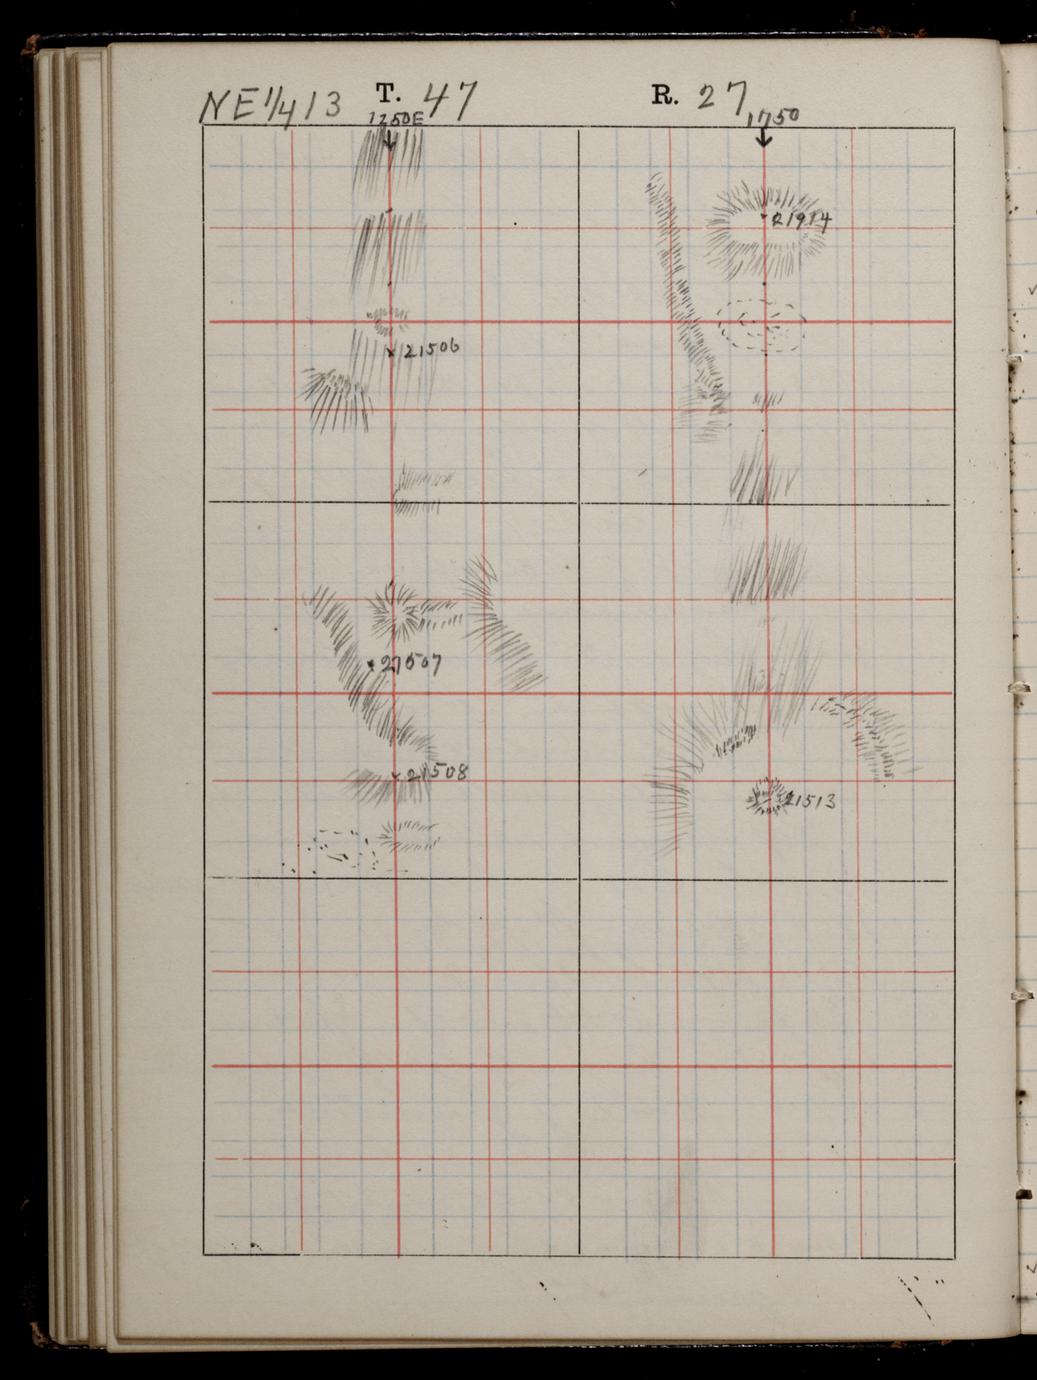 NE 1/4 13 T. 47 R. 27
1250E 1750
21914
21506
21507
21508
21513